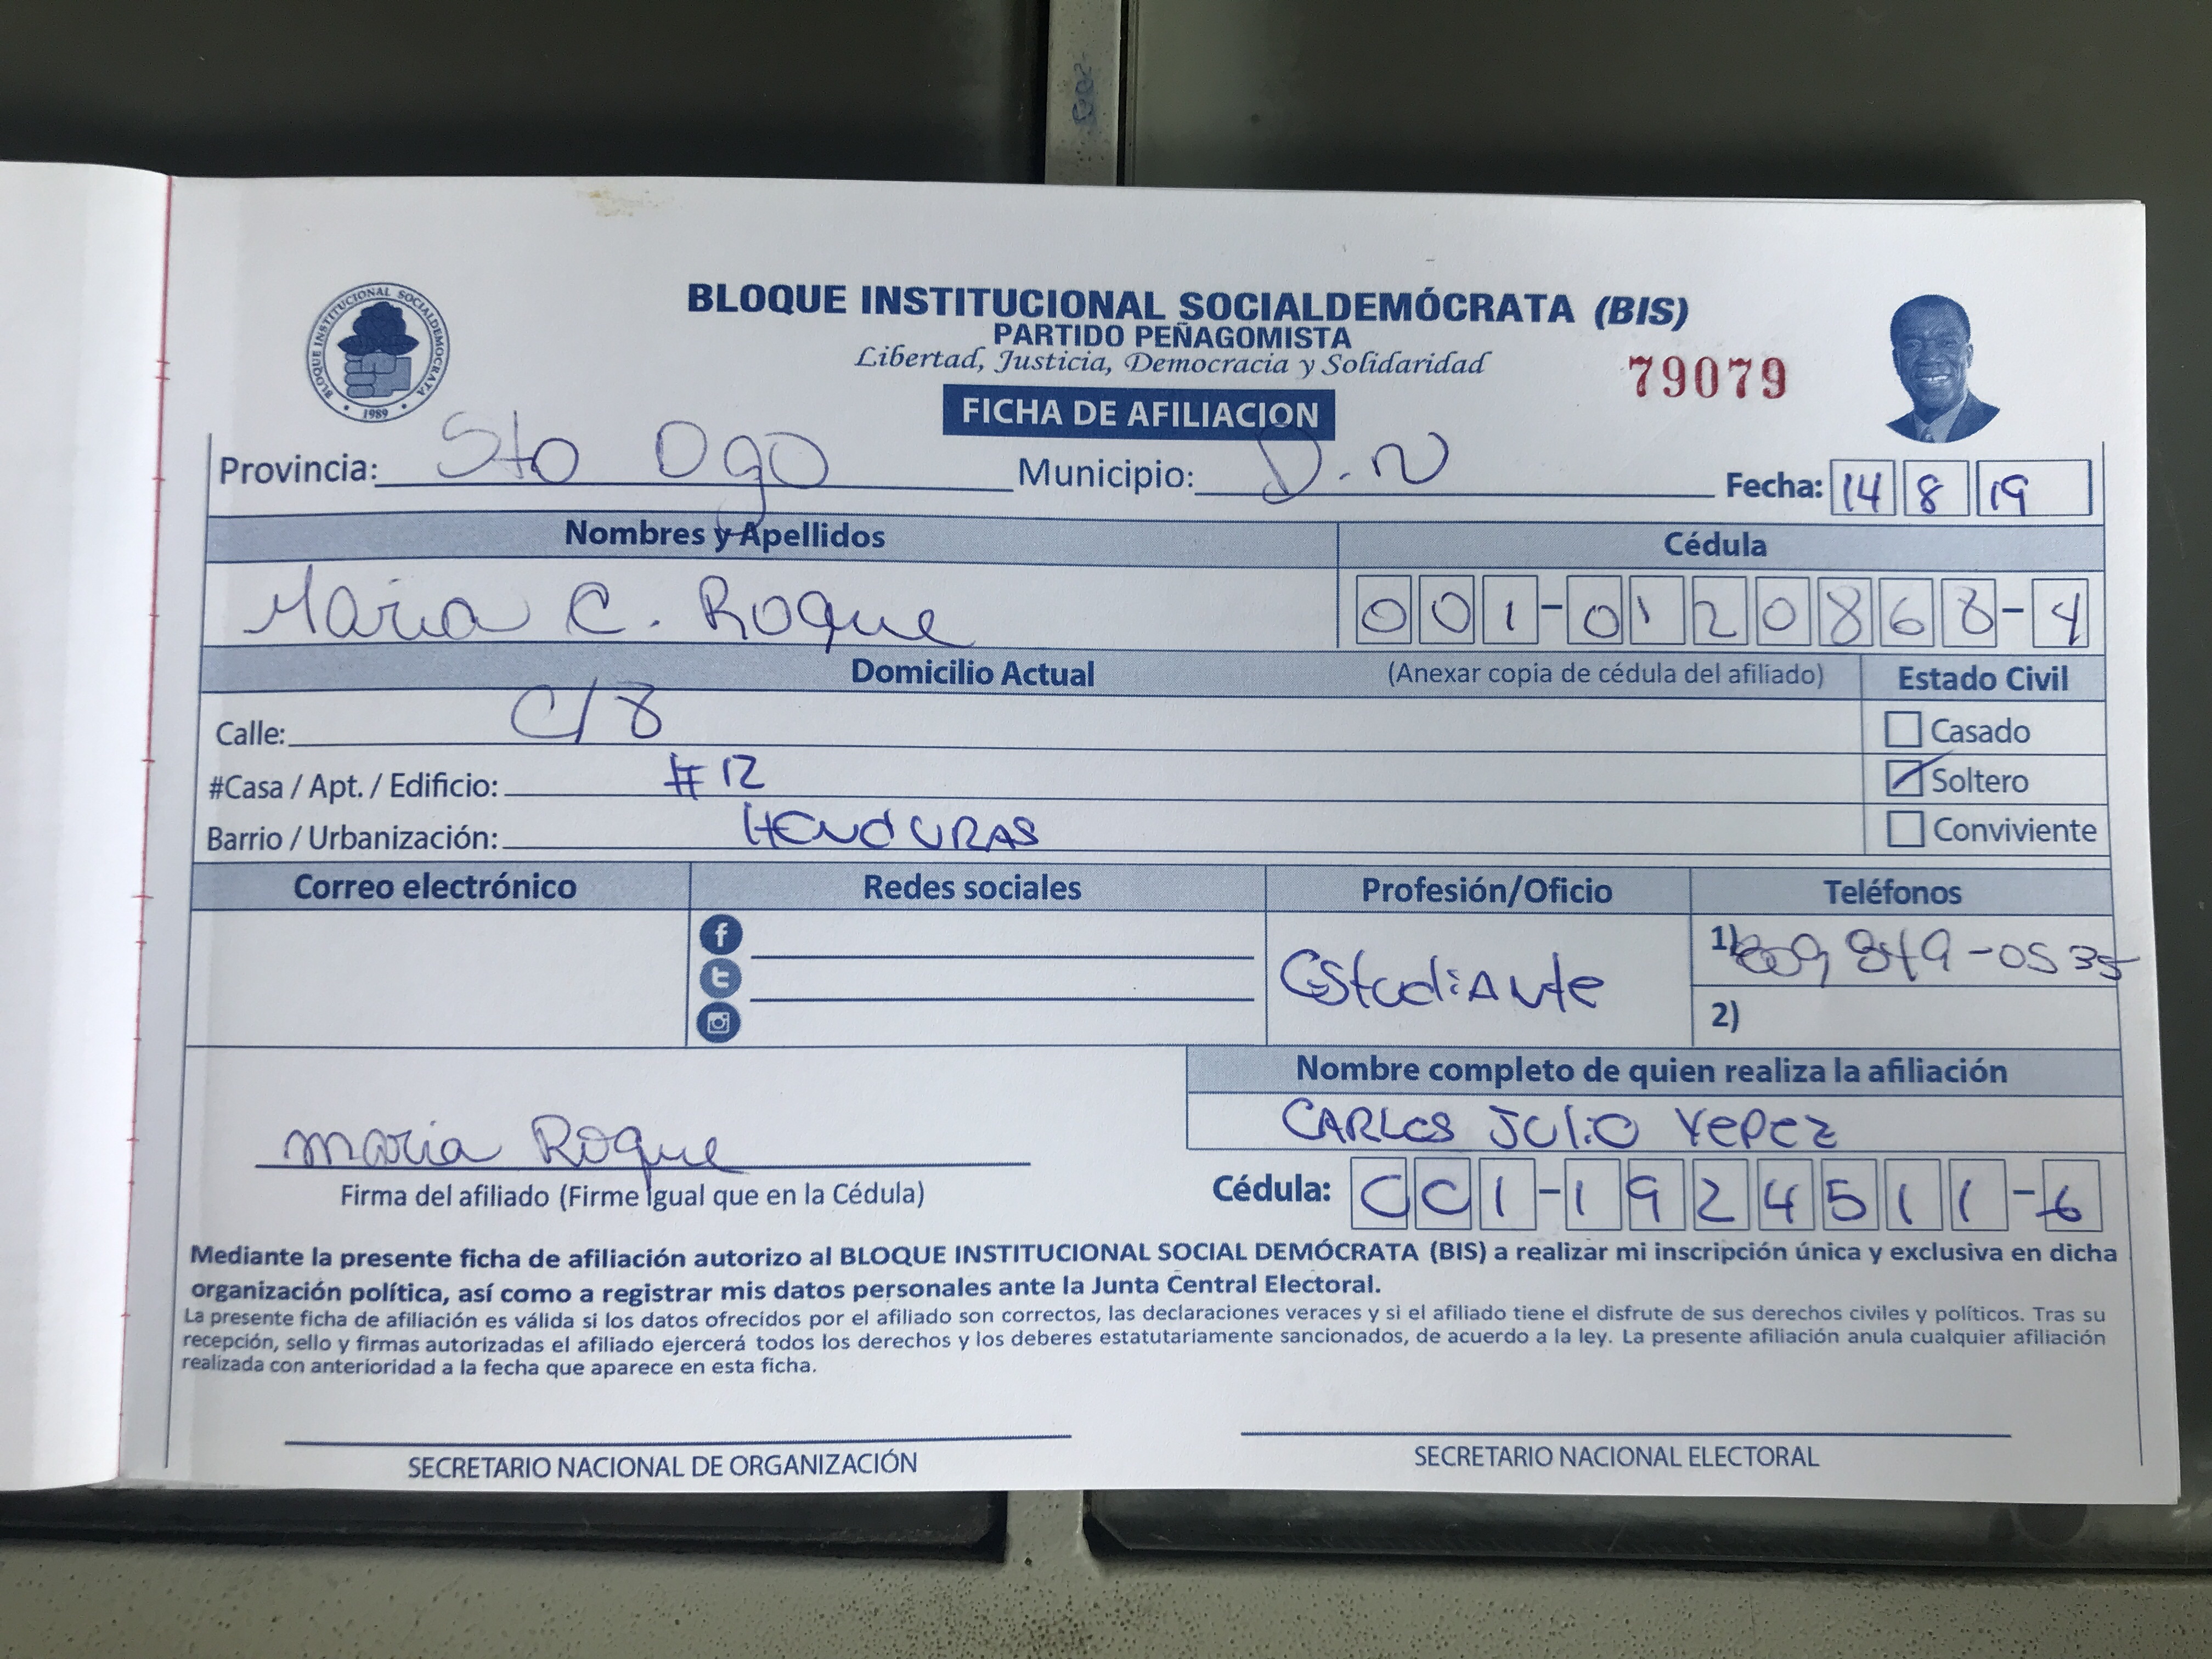 BLOQUE INSTITUCIONAL SOCIALDEMÓCRATA (BIS)
PARTIDO PEÑAGOMISTA
Libertad, Justicia, Democracia y Solidaridad
79079
BLOQUE INSTITUCIONAL SOCIALDEMOCRATA
• 1989 •
FICHA DE AFILIACION
Provincia: Sto Dgo Municipio: D.N Fecha: 14 8 19
Nombres y Apellidos Cédula
Maria C. Roque 001-0120868-4
Domicilio Actual (Anexar copia de cédula del afiliado) Estado Civil
Calle: C/8 Casado
#Casa / Apt. / Edificio: #12 Soltero
Barrio / Urbanización: HONDURAS Conviviente
Correo electrónico Redes sociales Profesión/Oficio Teléfonos
Estudiante
1) 809 849-0535
2)
Nombre completo de quien realiza la afiliación
CARLOS JULIO YEPEZ
Maria Roque
Firma del afiliado (Firme Igual que en la Cédula) Cédula: 001-1924511-6
Mediante la presente ficha de afiliación autorizo al BLOQUE INSTITUCIONAL SOCIAL DEMÓCRATA (BIS) a realizar mi inscripción única y exclusiva en dicha
organización política, así como a registrar mis datos personales ante la Junta Central Electoral.
La presente ficha de afiliación es válida si los datos ofrecidos por el afiliado son correctos, las declaraciones veraces y si el afiliado tiene el disfrute de sus derechos civiles y políticos. Tras su
recepción, sello y firmas autorizadas el afiliado ejercerá todos los derechos y los deberes estatutariamente sancionados, de acuerdo a la ley. La presente afiliación anula cualquier afiliación
realizada con anterioridad a la fecha que aparece en esta ficha.
SECRETARIO NACIONAL DE ORGANIZACIÓN SECRETARIO NACIONAL ELECTORAL